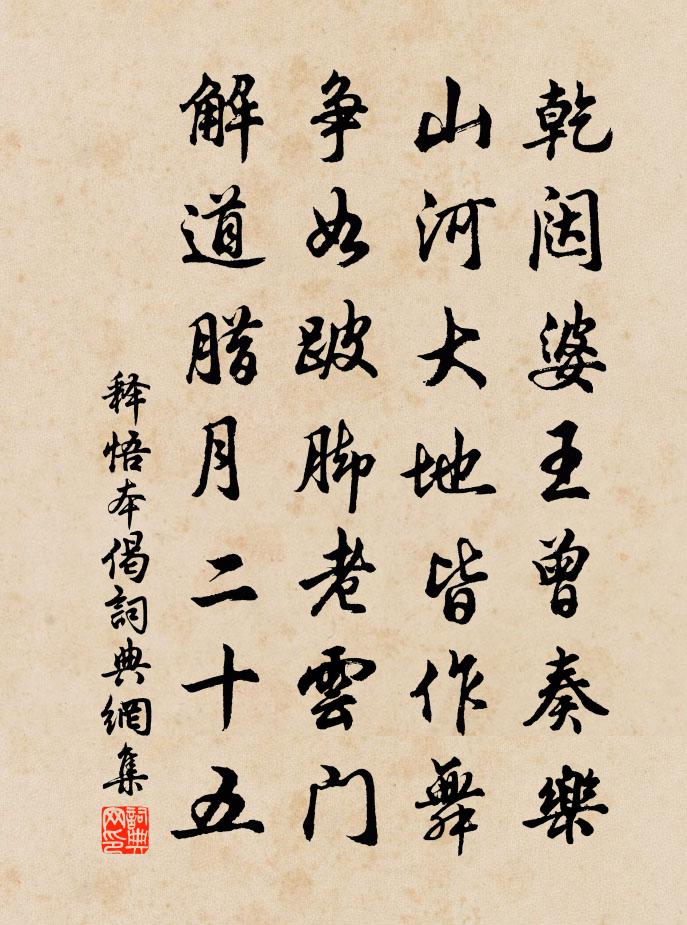 乾闼婆王曾奏樂
山河大地皆作舞
争如跛脚老雲门
解道腊月二十五
释悟本偈詞典網集
詞典网印